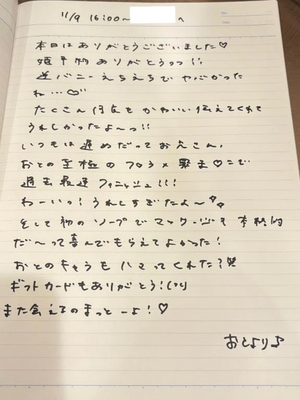 11/9 16:00～ へ
本日はありがとうございました♡
ありがとうっっ!!
逆バニーえちえちでヤバかった
ね…♡
たくさん かわいい伝えてくれて
うれしかったよ～っ!!
いつもは遅めだっておえさん、
おとの至極のフェラ× で
過去最速フィニッシュ!!!
わーいっ!うれしすぎたよ～
そして初のソープでマックーッも本格的
だ～って喜んでもらえてよかった!
おとのキャラもハマってくれた?
ギフトカードもありがとう!
また会えるのまっとーよ!♡
おとより♪